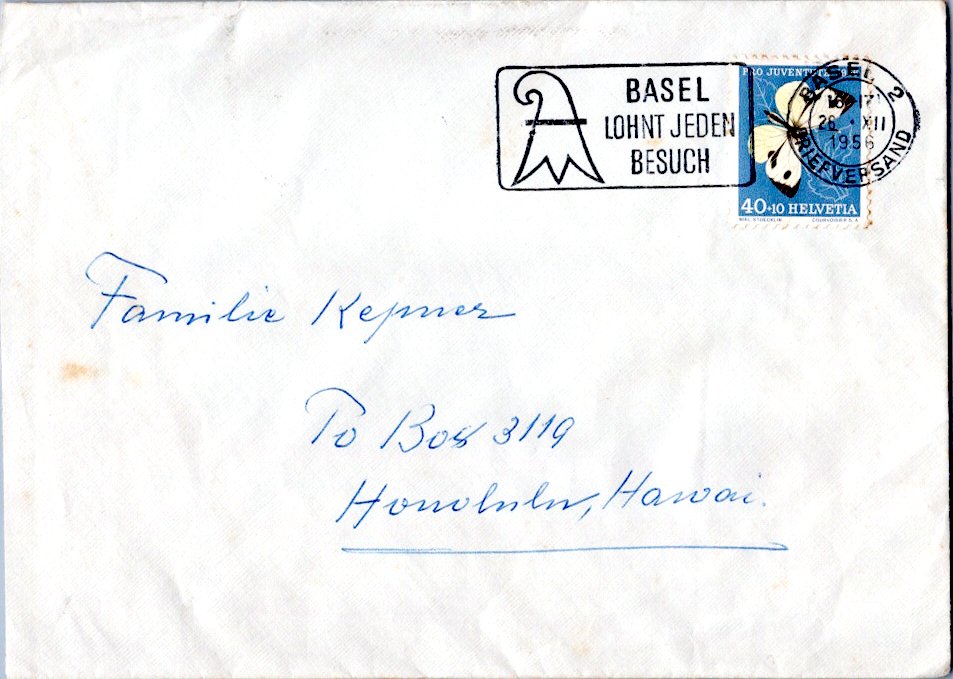 BASEL
LOHNT JEDEN
BESUCH
PRO JUVENTUTE
BASEL 2
28 · XII
1956
BRIEFVERSAND
40+10 HELVETIA
NIKL. STOECKLIN COURVOISIER S.A.
Familie Kepner
To Box 3119
Honolulu, Hawai.